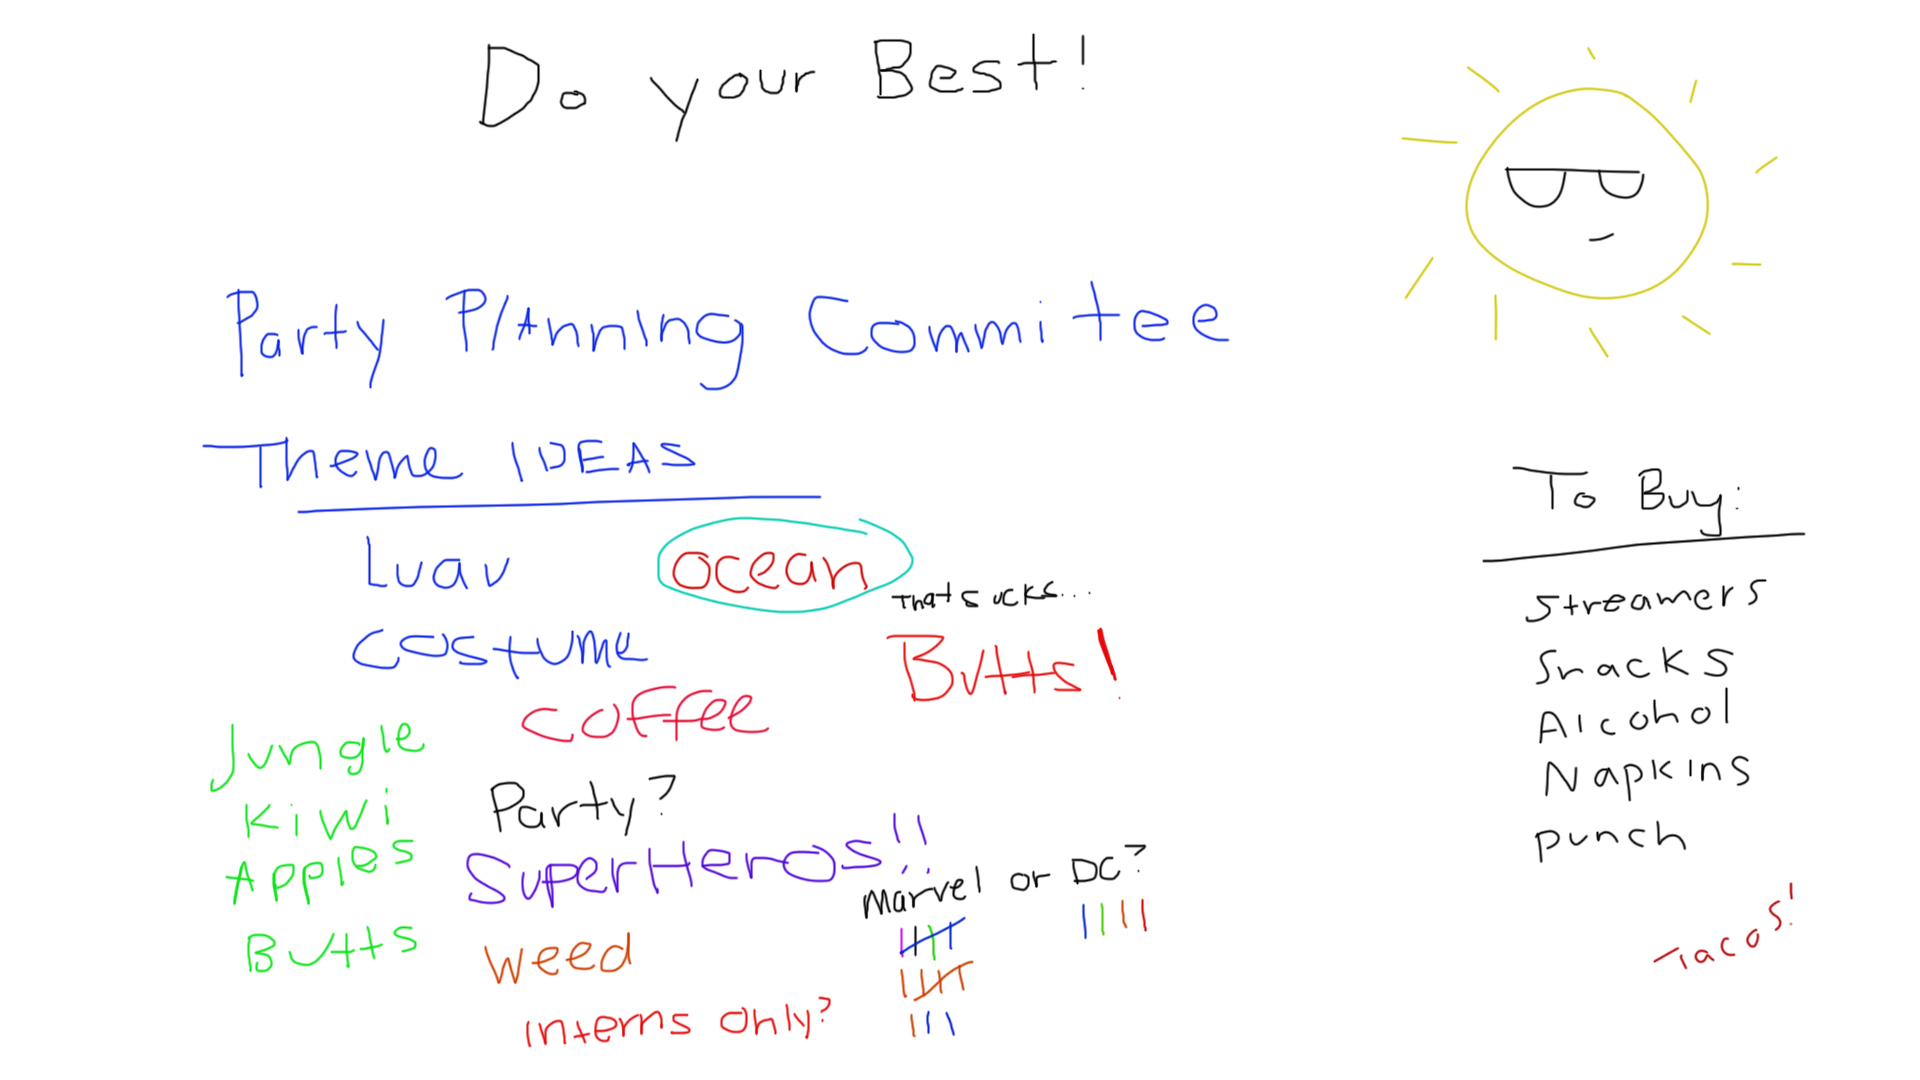 Do your Best!
Party Planning Commitee
Theme IDEAS
Luau
ocean
That sucks...
costume
Butts!
coffee
Jungle
Kiwi
Apples
Butts
Party?
SuperHeros!!
Marvel or DC?
weed
Interns only?
To Buy:
Streamers
Snacks
Alcohol
Napkins
punch
Tacos!